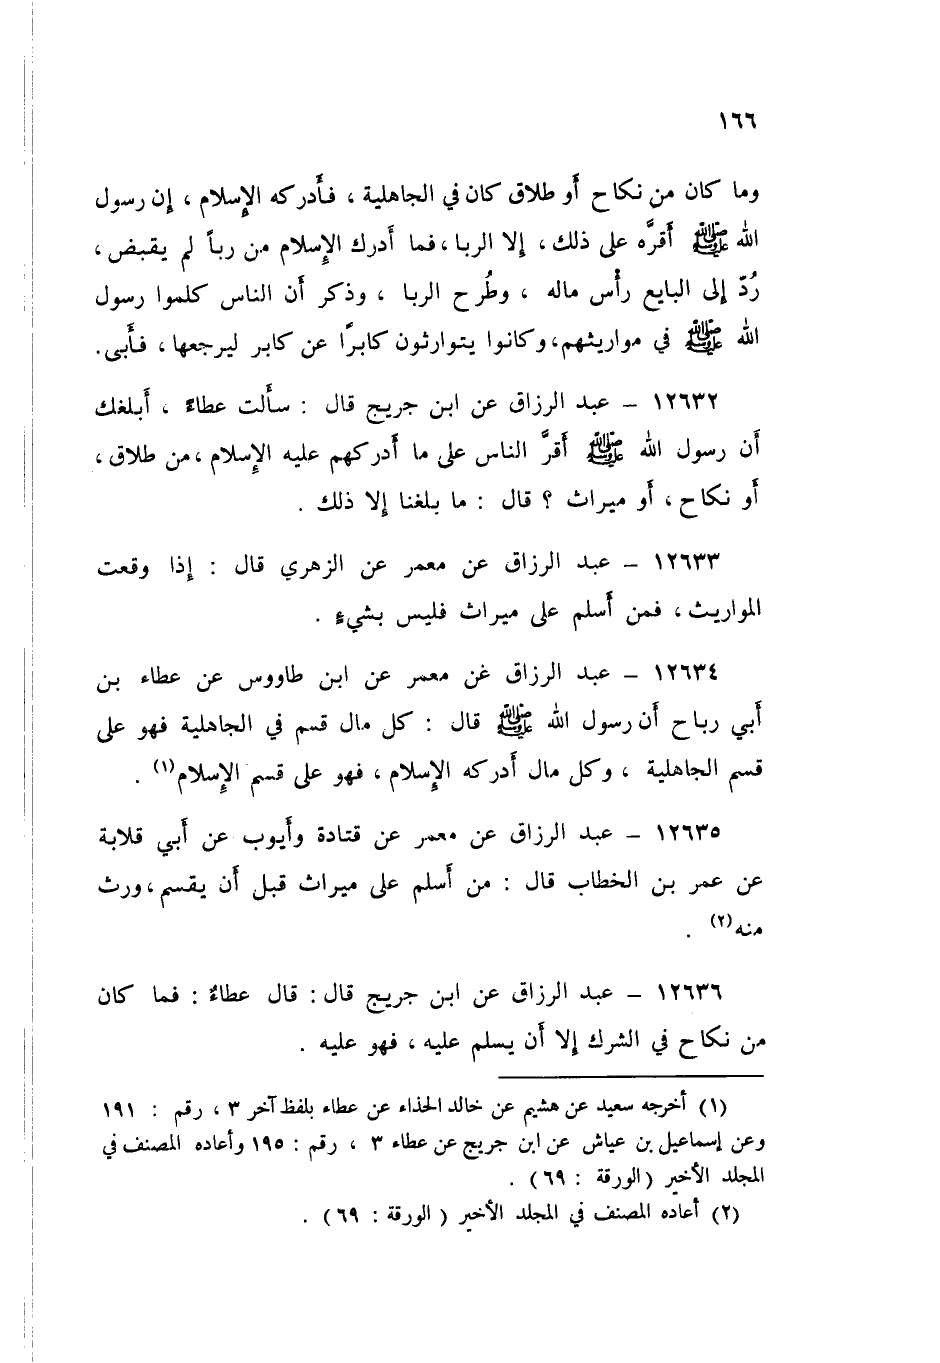 ١٦٦
وما كان من نكاح أو طلاق كان في الجاهلية ، فأدركه الإسلام ، إن رسول
الله ﷺ أقرَّه على ذلك ، إلا الربا ، فما أدرك الإسلام من رباً لم يقبض ،
رُدّ إلى البايع رأْس ماله ، وطُرح الربا ، وذكر أن الناس كلموا رسول
الله ﷺ في مواريثهم، وكانوا يتوارثون كابرًا عن كابر ليرجعها ، فأبى.
١٢٦٣٢ – عبد الرزاق عن ابن جريج قال : سألت عطاءً ، أبلغك
أن رسول الله ﷺ أقرَّ الناس على ما أدركهم عليه الإسلام ، من طلاق ،
أو نكاح ، أو ميراث ؟ قال : ما بلغنا إلا ذلك .
١٢٦٣٣ – عبد الرزاق عن معمر عن الزهري قال : إذا وقعت
المواريث ، فمن أسلم على ميراث فليس بشيءٍ .
١٢٦٣٤ – عبد الرزاق غن معمر عن ابن طاووس عن عطاء بن
أبي رباح أن رسول الله ﷺ قال : كل مال قسم في الجاهلية فهو على
قسم الجاهلية ، وكل مال أدركه الإسلام ، فهو على قسم الإسلام(١) .
١٢٦٣٥ – عبد الرزاق عن معمر عن قتادة وأيوب عن أبي قلابة
عن عمر بن الخطاب قال : من أسلم على ميراث قبل أن يقسم ، ورث
منه(٢) .
١٢٦٣٦ – عبد الرزاق عن ابن جريج قال : قال عطاءٌ : فما كان
من نكاح في الشرك إلا أن يسلم عليه ، فهو عليه .
(١) أخرجه سعيد عن هشيم عن خالد الحذاء عن عطاء بلفظ آخر ٣ ، رقم : ١٩١
وعن إسماعيل بن عياش عن ابن جريج عن عطاء ٣ ، رقم : ١٩٥ وأعاده المصنف في
المجلد الأخير (الورقة : ٦٩) .
(٢) أعاده المصنف في المجلد الأخير ( الورقة : ٦٩) .